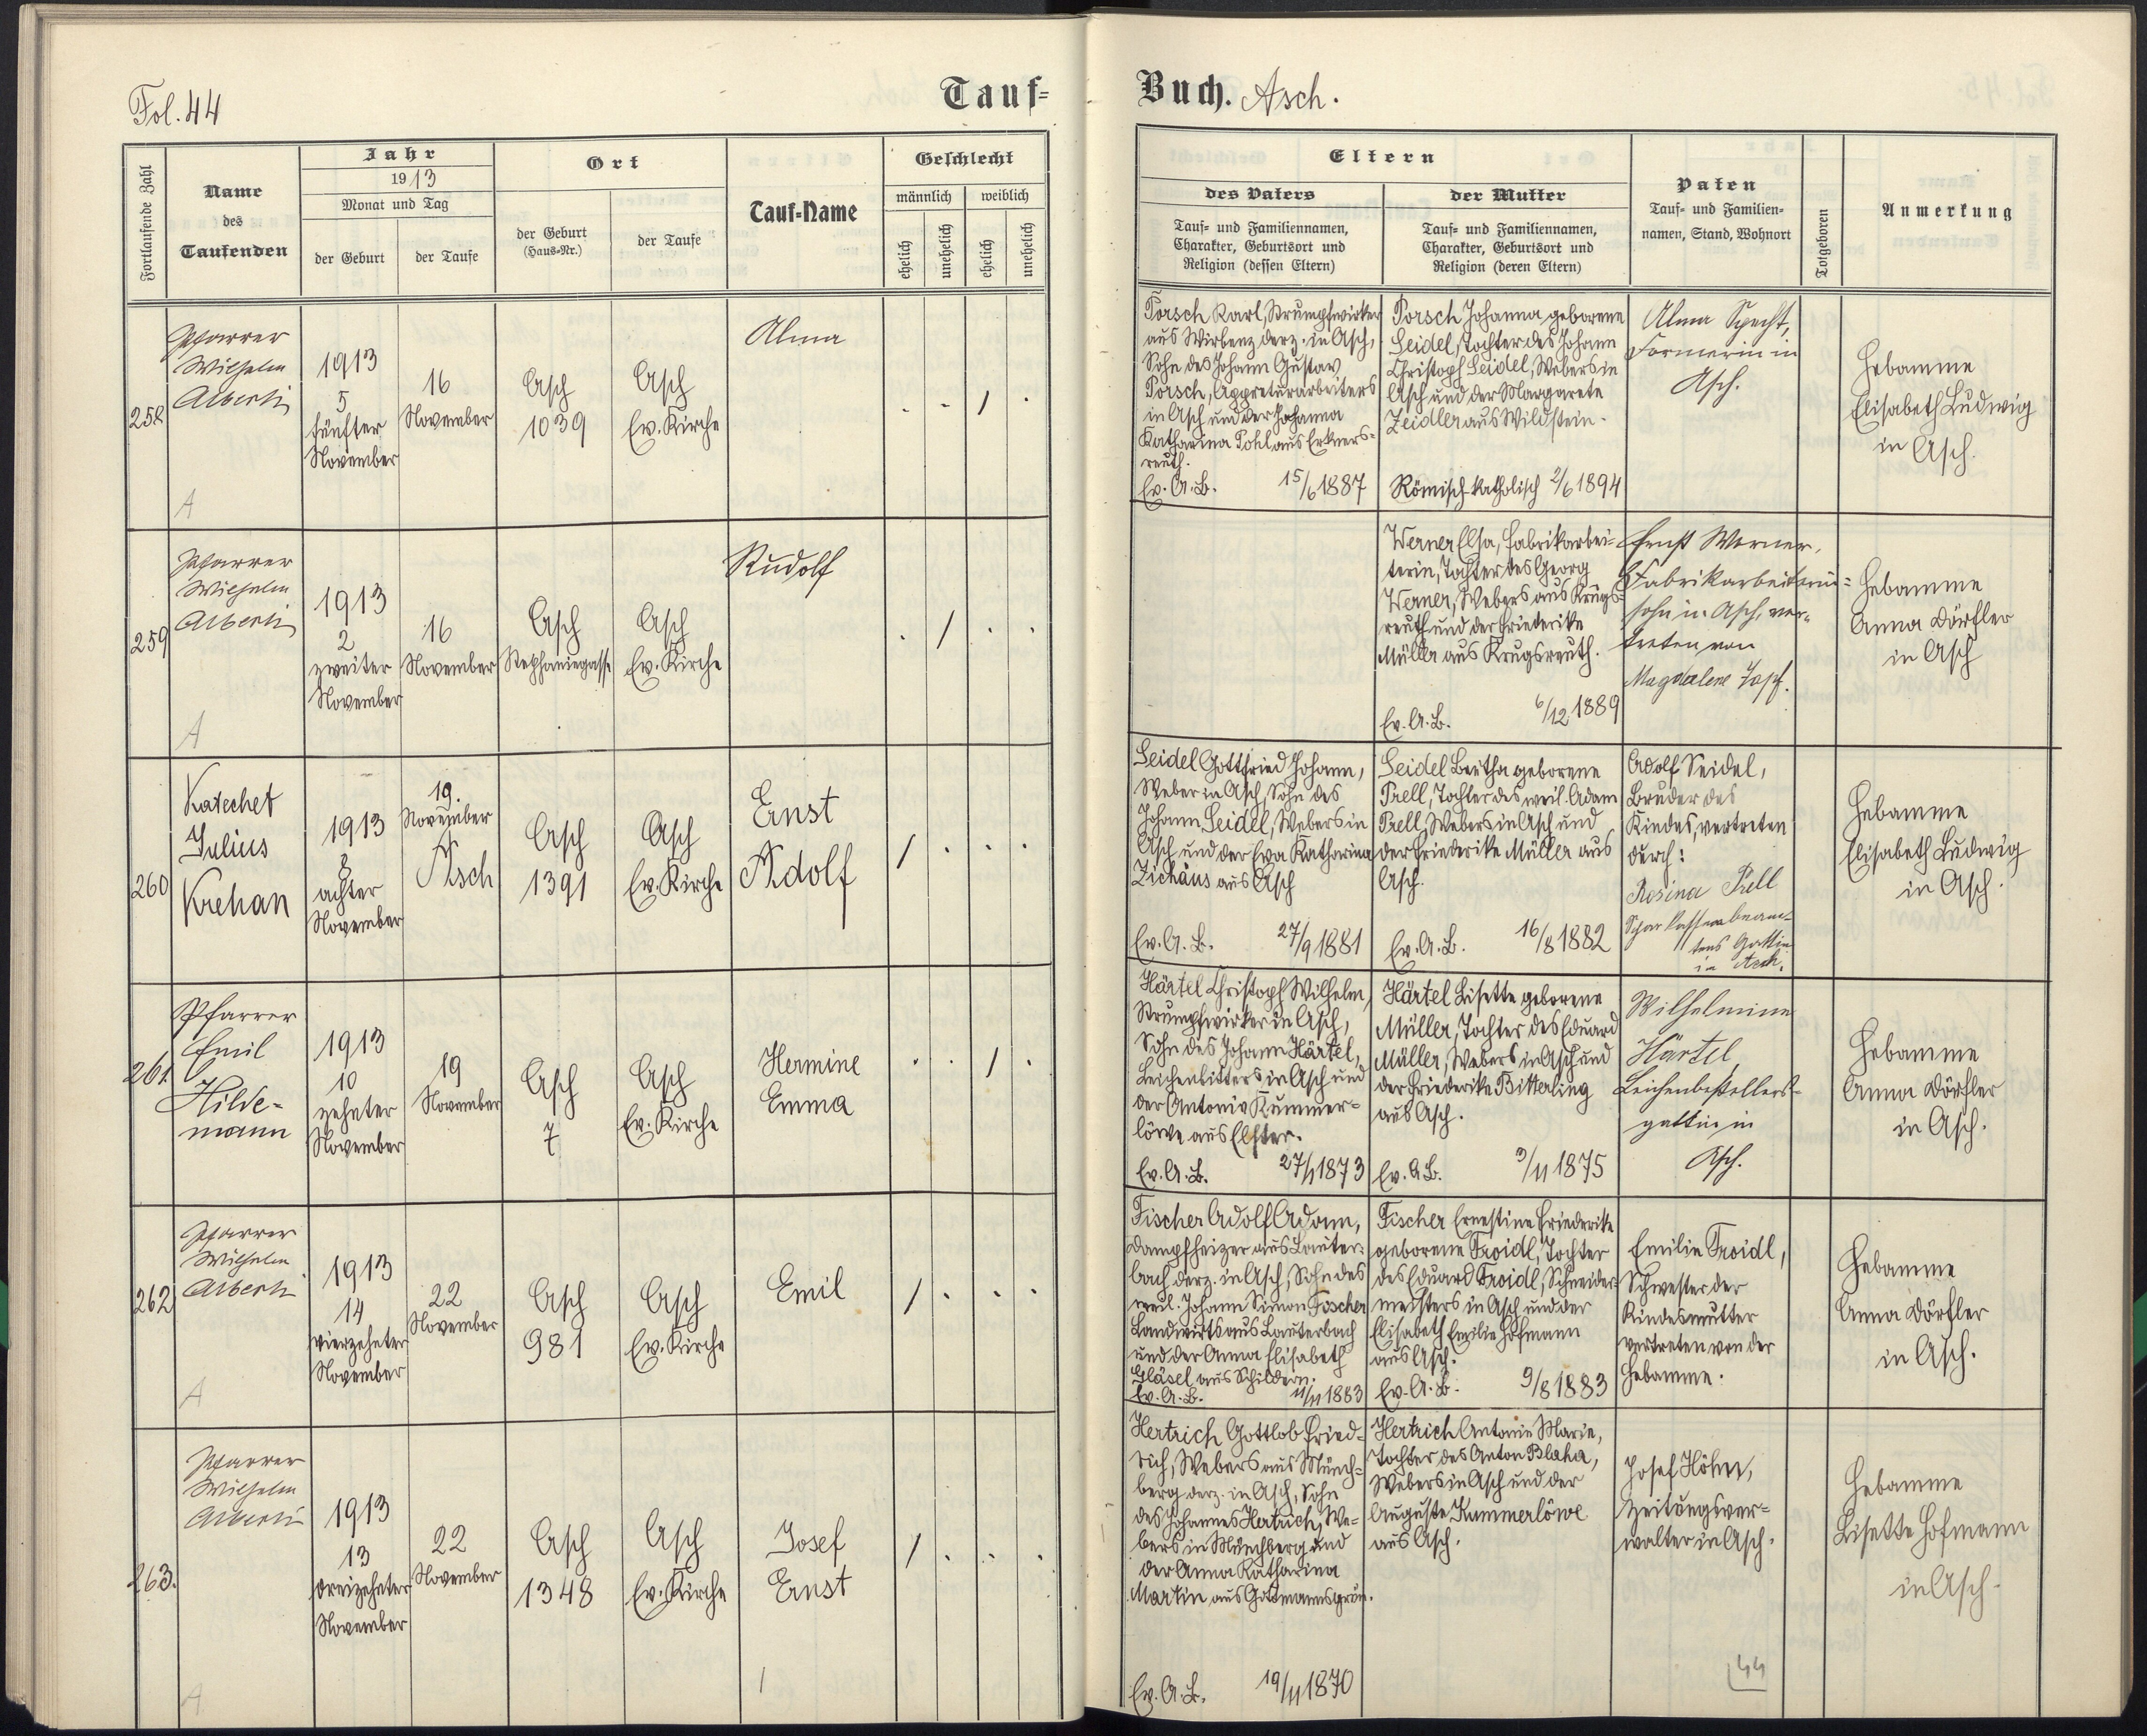 Fol. 44
Tauf-
Buch. Asch.
Fortlaufende Zahl
Name
des
Taufenden
Jahr
1913
Monat und Tag
der Geburt
der Taufe
Ort
der Geburt
(Haus-Nr.)
der Taufe
Tauf-Name
Geschlecht
männlich
weiblich
ehelich
unehelich
ehelich
unehelich
Eltern
des Vaters
Tauf- und Familiennamen,
Charakter, Geburtsort und
Religion (dessen Eltern)
der Mutter
Tauf- und Familiennamen,
Charakter, Geburtsort und
Religion (deren Eltern)
Paten
Tauf- und Familien-
namen, Stand, Wohnort
Totgeboren
Anmerkung
258
Pfarrer
Wilhelm
Alberti
A
1913
5
fünfter
November
16
November
Asch
1039
Asch
Ev. Kirche
Alma
Porsch Karl, Strumpfwirker
aus Wirbenz derz. in Asch,
Sohn des Johann Gustav
Porsch, Appreturarbeiters
in Asch und der Johanna
Katharina Pohl aus Erkers-
reuth.
Ev. A. B. 15/6 1887
Porsch Johanna geborene
Seidel, Tochter des Johann
Christoph Seidel, Webers in
Asch und der Margarete
Zeidler aus Wildstein.
Römisch katholisch 2/6 1894
Alma Specht,
Formerin in
Asch.
Hebamme
Elisabeth Ludwig
in Asch.
259
Pfarrer
Wilhelm
Alberti
A
1913
2
zweiter
November
16
November
Asch
Stephaniegasse
Asch
Ev. Kirche
Rudolf
Werner Elsa, Fabrikarbei-
terin, Tochter des Georg
Werner, Webers aus Krugs-
reuth und der Friederike
Müller aus Krugsreuth.
Ev. A. B. 6/12 1889
Ernst Werner,
Fabrikarbeiterin-
sohn in Asch, ver-
treten von
Magdalene Zapf.
Hebamme
Anna Dörfler
in Asch
260
Katechet
Julius
Krehan
1913
8
achter
November
19.
November
Asch
Asch
1391
Asch
Ev. Kirche
Ernst
Adolf
Seidel Gottfried Johann,
Weber in Asch, Sohn des
Johann Seidel, Webers in
Asch und der Eva Katharina
Zichäus aus Asch
Ev. A. B. 27/9 1881
Seidel Bertha geborene
Prell, Tochter des weil. Adam
Prell, Webers in Asch und
der Friederike Müller aus
Asch.
Ev. A. B. 16/8 1882
Adolf Seidel,
Bruder des
Kindes, vertreten
durch:
Rosina Prell
Sparkassenbeam-
tens Gattin
in Asch.
Hebamme
Elisabeth Ludwig
in Asch.
261.
Pfarrer
Emil
Hilde-
mann
1913
10
zehnter
November
19
November
Asch
7
Asch
Ev. Kirche
Hermine
Emma
Härtel Christoph Wilhelm,
Strumpfwirker in Asch,
Sohn des Johann Härtel,
Leichenbitters in Asch und
der Antonie Kummer-
löwe aus Elster.
Ev. A. B. 27/11 1873
Härtel Lisette geborene
Müller, Tochter des Eduard
Müller, Webers in Asch und
der Friederike Bitterling
aus Asch.
Ev. A. B. 3/11 1875
Wilhelmine
Härtel,
Leichenbestellers-
gattin in
Asch.
Hebamme
Anna Dörfler
in Asch.
262
Pfarrer
Wilhelm
Alberti
A
1913
14
vierzehnter
November
22
November
Asch
981
Asch
Ev. Kirche
Emil
Fischer Adolf Adam,
Dampfheizer aus Lauter-
bach derz. in Asch, Sohn des
weil. Johann Simon Fischer
Landwirts aus Lauterbach
und der Anna Elisabeth
Gläsel aus Schildern.
Ev. A. B. 11/11 1883
Fischer Ernestine Friederike
geborene Froidl, Tochter
des Eduard Froidl, Schneider-
meisters in Asch und der
Elisabeth Emilie Hofmann
aus Asch.
Ev. A. B. 9/8 1883
Emilie Froidl,
Schwester der
Kindesmutter
vertreten von der
Hebamme.
Hebamme
Anna Dörfler
in Asch.
263.
Pfarrer
Wilhelm
Alberti
A
1913
13
dreizehnter
November
22
November
Asch
1348
Asch
Ev. Kirche
Josef
Ernst
Hertrich Gottlob Fried-
rich, Webers aus Münch-
berg derz. in Asch, Sohn
des Johannes Hertrich, We-
bers in Münchberg und
der Anna Katharina
Martin aus Gottmannsgrün.
Ev. A. B. 19/11 1870
Hertrich Antonie Marie,
Tochter des Anton Blaha,
Webers in Asch und der
Auguste Kummerlöwe
aus Asch.
Josef Höhn,
Zeitungsver-
walter in Asch.
Hebamme
Lisette Hofmann
in Asch.
44